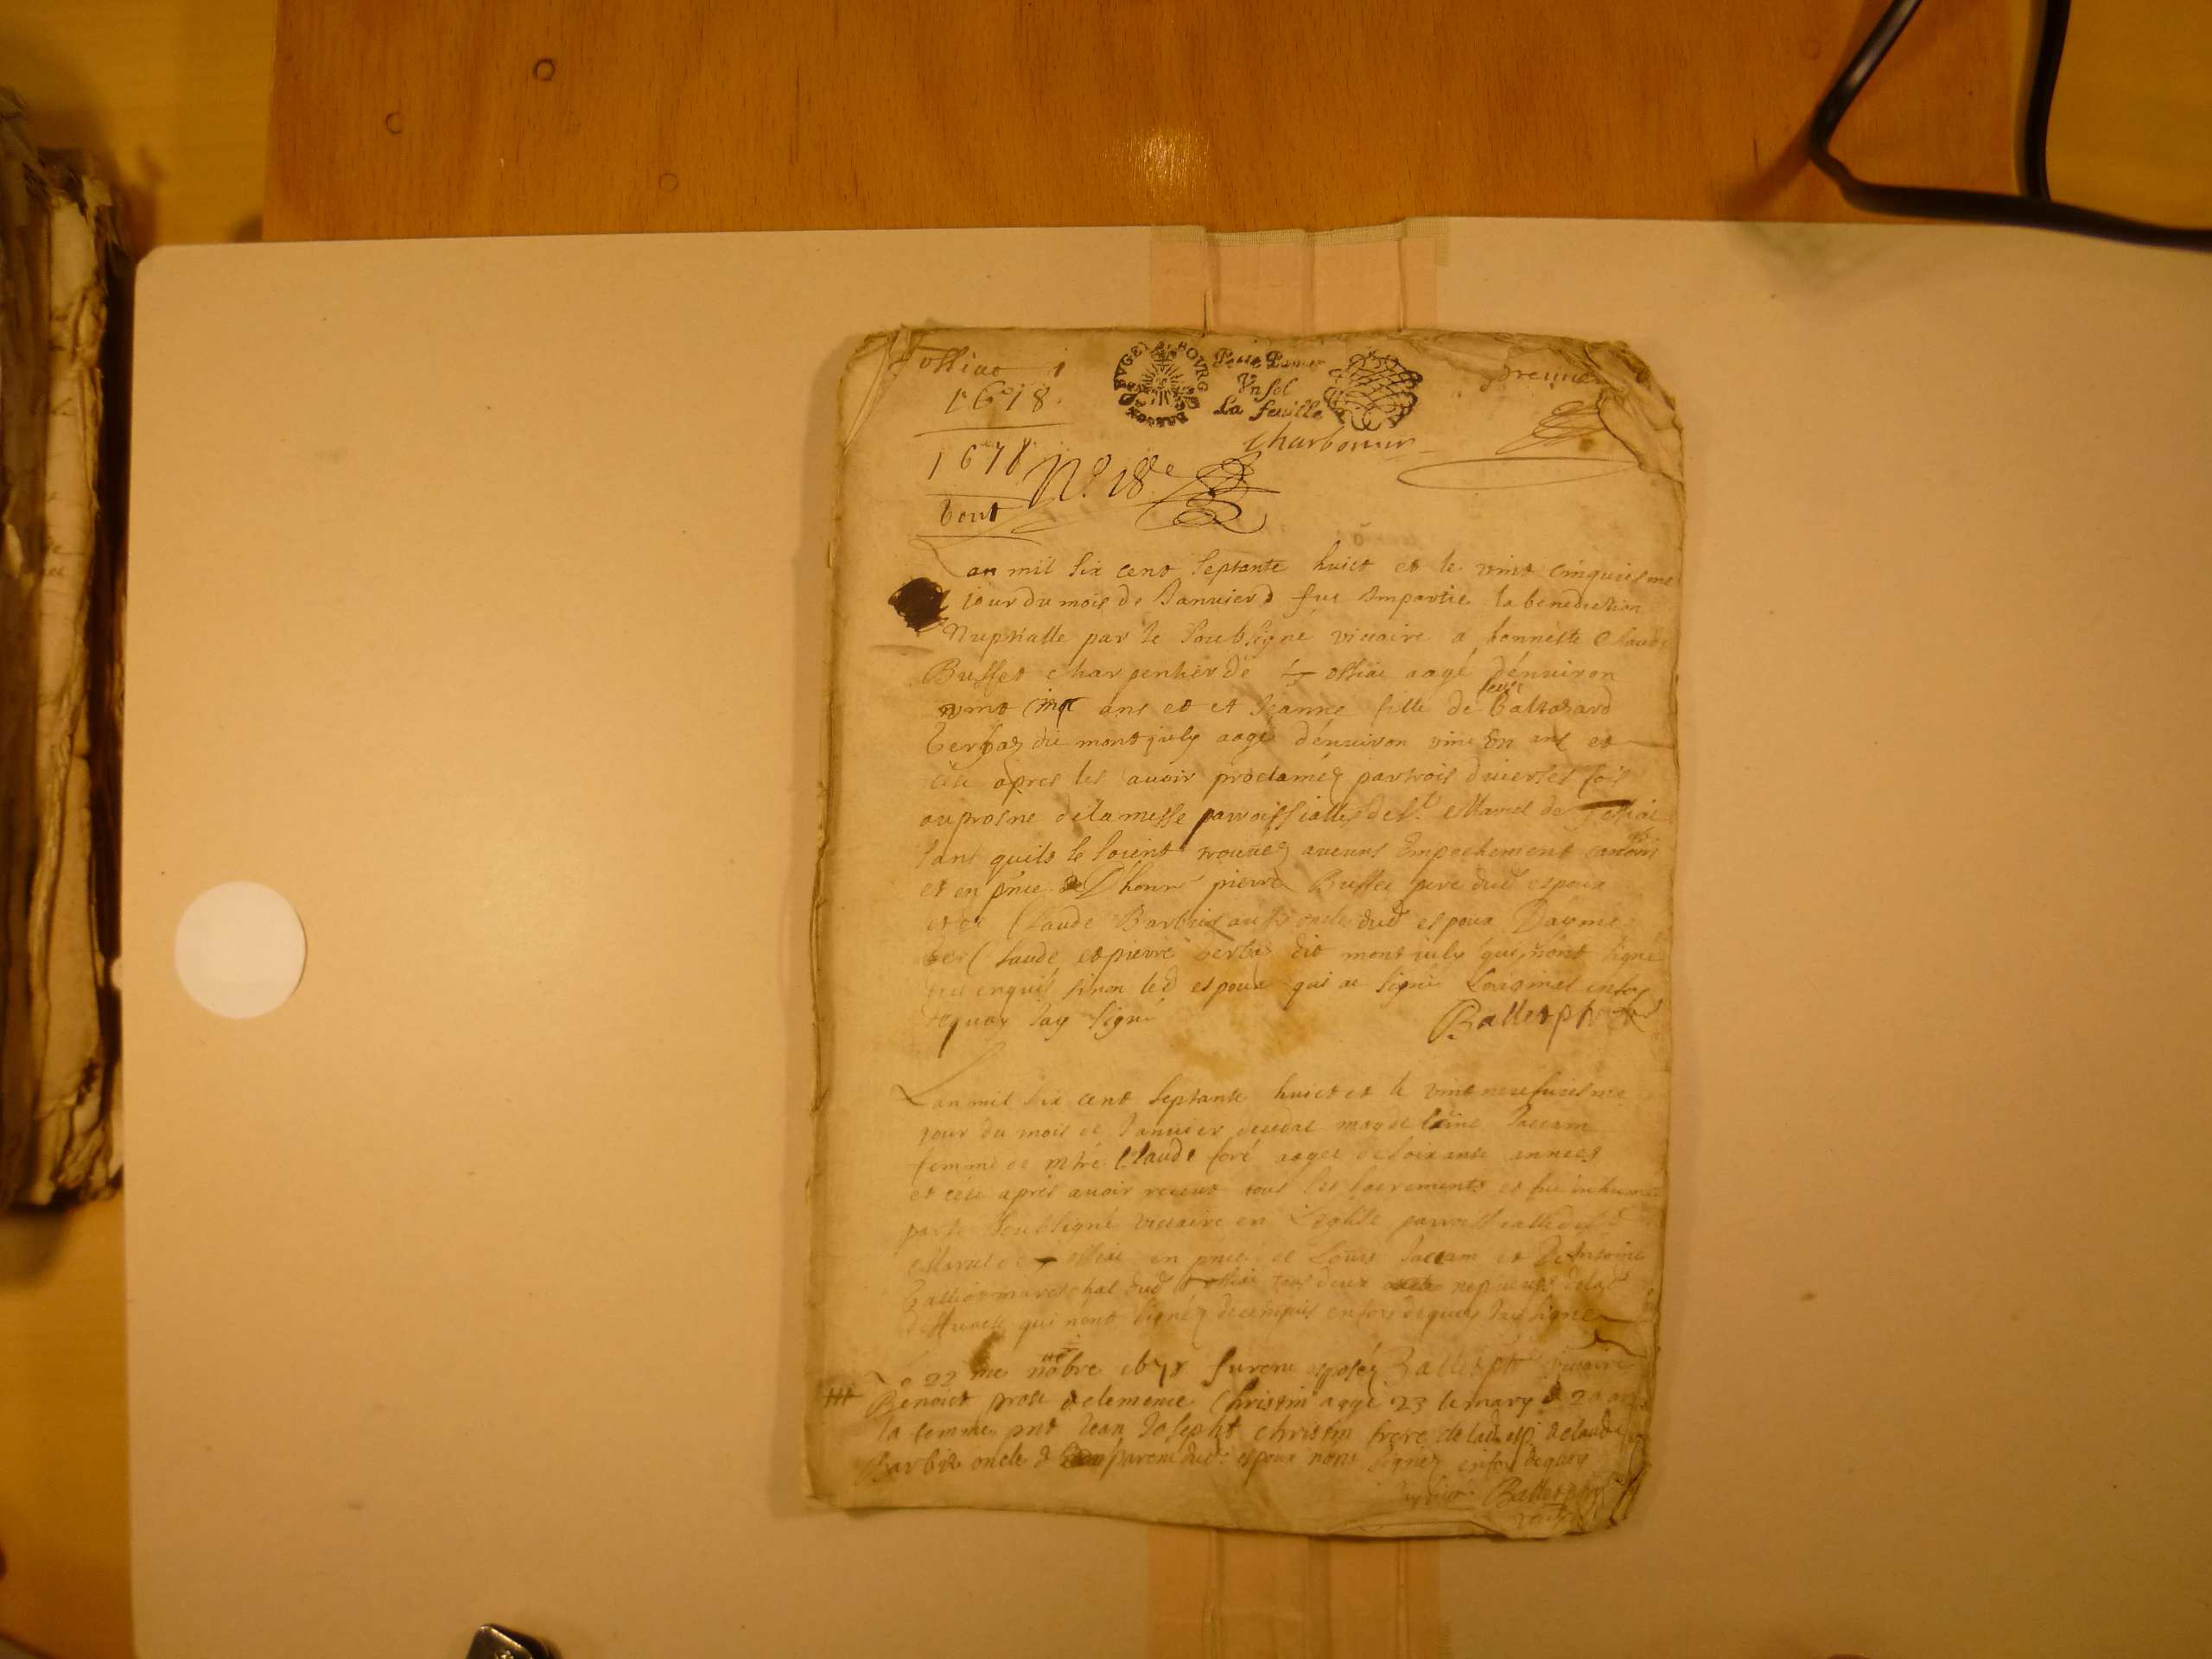 Tossiat 1
1678
BOVRG BVGEY
Petit Papier
Un sol
La feuille
premier
Charbonnier
1678 N.° 18.e
bont
Lan mil six cent septante huict et le vint cinquiesme
jour du mois de Januier fut Impartie la benediction
Nuptialle par le soubsigné viccaire a honneste Claude
Buffet charpentier de Tossiat aagé dénuiron
vint cinq ans et et Jeanne fille de feuz Baltazard
dit montjuly aagée dénuiron vint un ans et
cela apres les auoir proclaméz par trois diuerses fois
au prosne de la messe parroissialle de St. Marcel de Tossiat
sans quils se soient trouuéz aucuns Empechement
et en pñce de honn pierre Buffet pere dud espoux
et de Claude Barbier aussy oncle dud espoux
Claude et pierre dit montjuly qui nont signé
enquis sinon led espoux qui a signé Loriginal en foy
dequoy Jay signé Ballet ptre
Lan mil six cent septante huict et le vint neufuiesme
jour du mois de Januier deceda magdeleine Paccam
femme de mtre Claude foré aagée de soixante années
et cela aprés avoir receut tous les sacrements et fut inhumée
par le soubsigné viccaire en Léglise parroissialle de St
Marcel de Tossiat en pñce de Louis Paccam et De Antoine
mareschal dud Tossiat tous deux nepueux de lad
deffuncte qui nont signéz de enquis en foy dequoy Jay signé
Le 22 me nobre 1678 furent esposéz Ballet ptre viccaire
Benoict prost & clemence Christin aagé 23 le mary & 20 ans
la femme pnt Jean Joseph christin frere de lad. esp. & claude
Barbier oncle & parent dud. espoux nont signéz en foy dequoy
Jay signé Ballet ptre